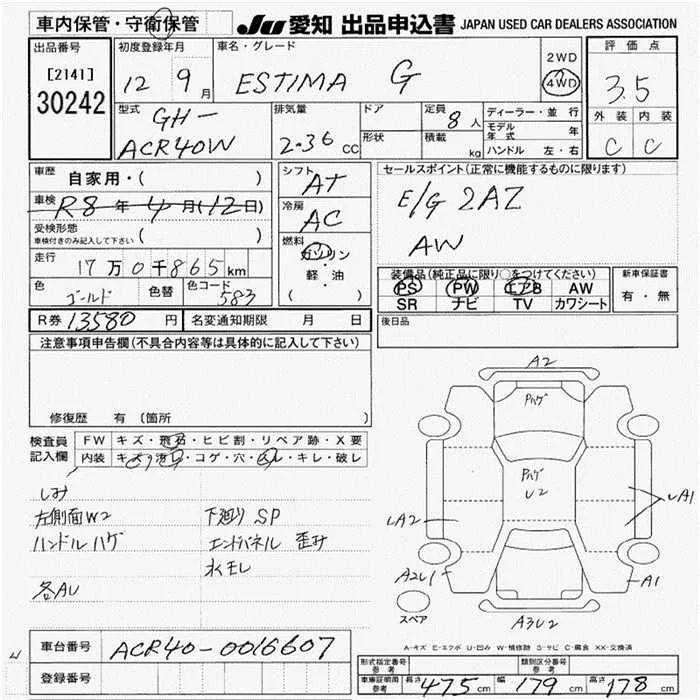 車内保管・守衛保管
JU 愛知 出品申込書 JAPAN USED CAR DEALERS ASSOCIATION
出品番号
[2141]
30242
初度登録年月
12 9月
車名・グレード
ESTIMA G
2WD
4WD
評価点
3.5
外装 内装
C C
型式
GH-
ACR40W
排気量
2.36 CC
ドア
形状
定員
8人
積載
kg
ディーラー・並行
モデル年式 年
ハンドル 左・右
車歴
自家用・( )
車検
R8年4月(12日)
受検形態
車検付きのみ記入して下さい ( )
走行
17万0千865km
色
ゴールド
色替
色コード
583
シフト
AT
冷房
AC
燃料
ガソリン
軽・油
( )
セールスポイント(正常に機能するものに限ります)
E/G 2AZ
AW
装備品(純正品に限り○をつけてください)
PS PW エアB AW
SR ナビ TV カワシート
新車保証書
有・無
R券 13580円
名変通知期限 月 日
後日品
注意事項申告欄(不具合内容等は具体的に記入して下さい)
修復歴 有(箇所
検査員
記入欄
FW キズ・飛石・ヒビ割・リペア跡・X要
内装 キズ・汚・コゲ・穴・・キレ・破レ
しみ
左側面W2 下廻り SP
ハンドルハゲ エンドパネル 歪み
水モレ
各AU
A2
Pハゲ
Pハゲ
U2
A1
A2
A2U1
A1
A3U2
スペア
A-キズ E-エクボ U-凹み W-補修跡 S-サビ C-腐食 XX-交換済
車台番号
ACR40-0016607
登録番号
形式指定番号 参考
類別区分番号 参考
車庫証明用 参考
長さ 475cm 幅 179cm 高さ 178cm